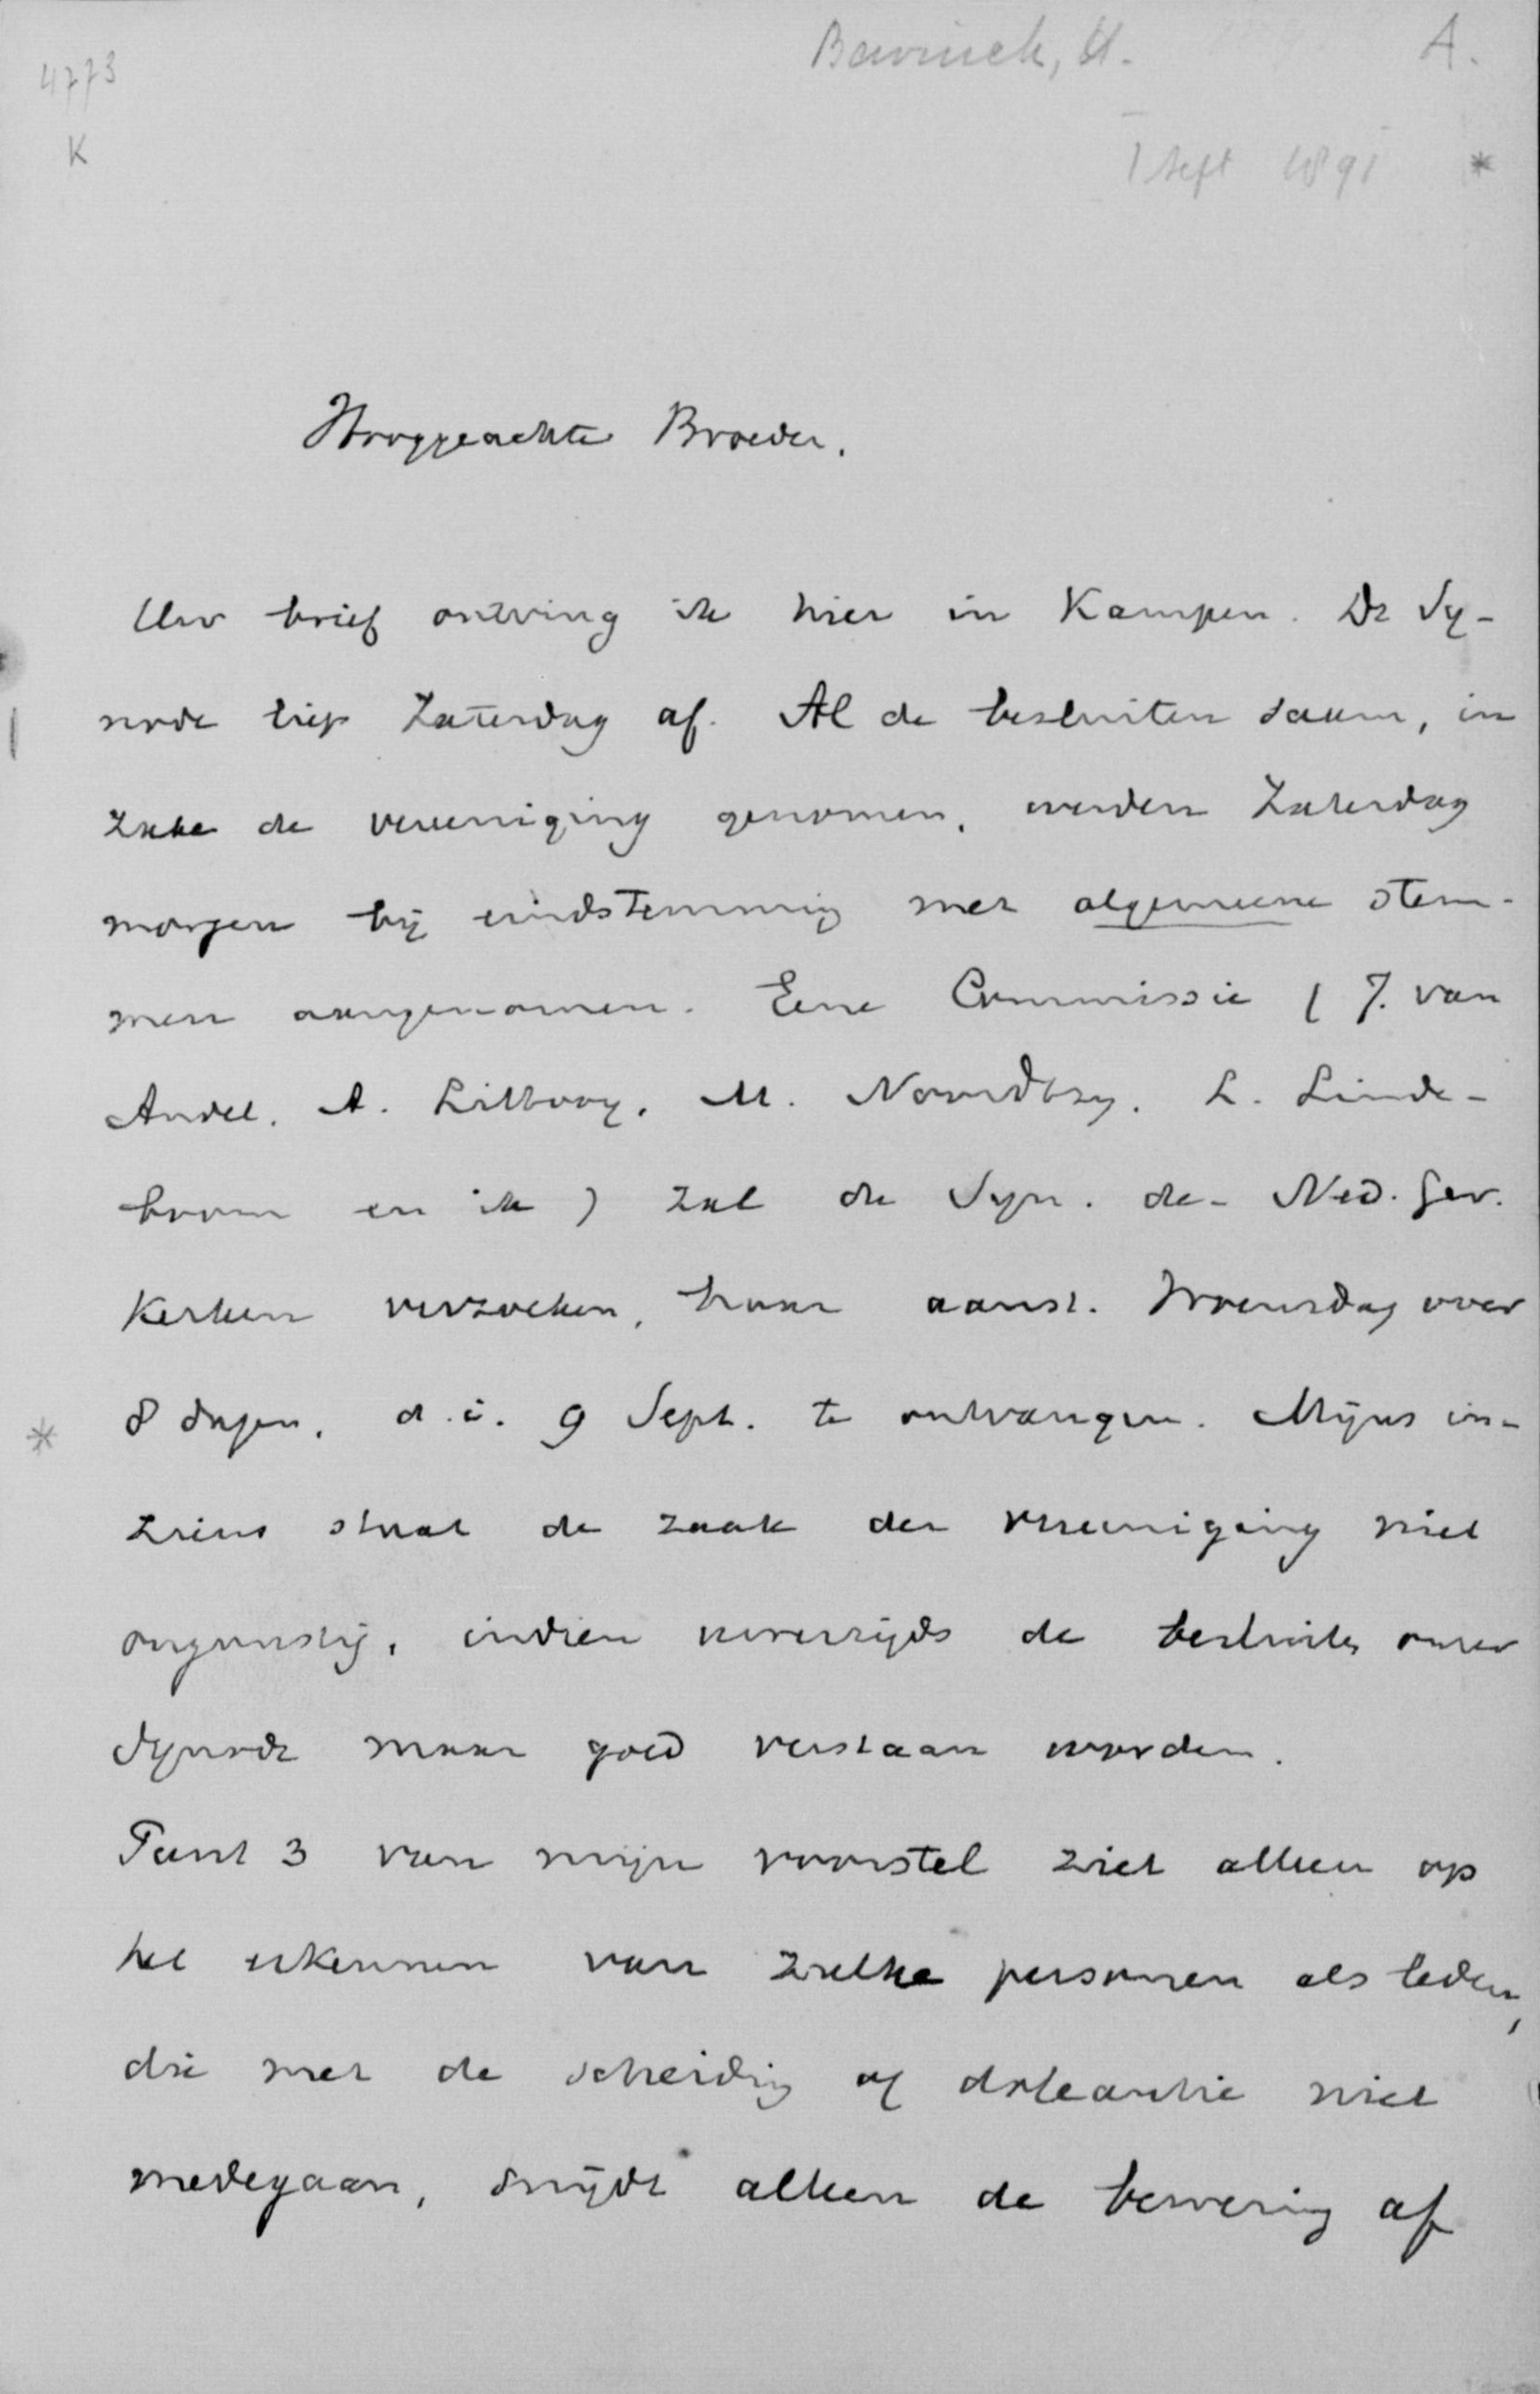 4773
K
Bavinck, H.
A.
1 Sept 1891 *
Hooggeachte Broeder.
Uw brief ontving ik hier in Kampen. De Sy-
node liep Zaterdag af. Al de besluiten saam, in
zake de vereeniging genomen, werden Zaterdag
morgen bij eindstemming met algemeene stem-
men aangenomen. Eene Commissie ( J. van
Andel. A. Littooy. M. Noordtzy. L. Linde-
boom en ik ) zal de Syn. der Ned. Ger.
Kerken verzoeken, haar aanst. Woensdag over
* 8 dagen, d.i. 9 Sept. te ontvangen. Mijns in-
ziens staat de zaak der vereeniging niet
ongunstig, indien uwerzijds de besluiten onzer
Synode maar goed verstaan worden.
Punt 3 van mijn voorstel ziet alleen op
het erkennen van zulke personen als leden,
die met de scheiding of doleantie niet
medegaan, snijdt alleen de bewering af